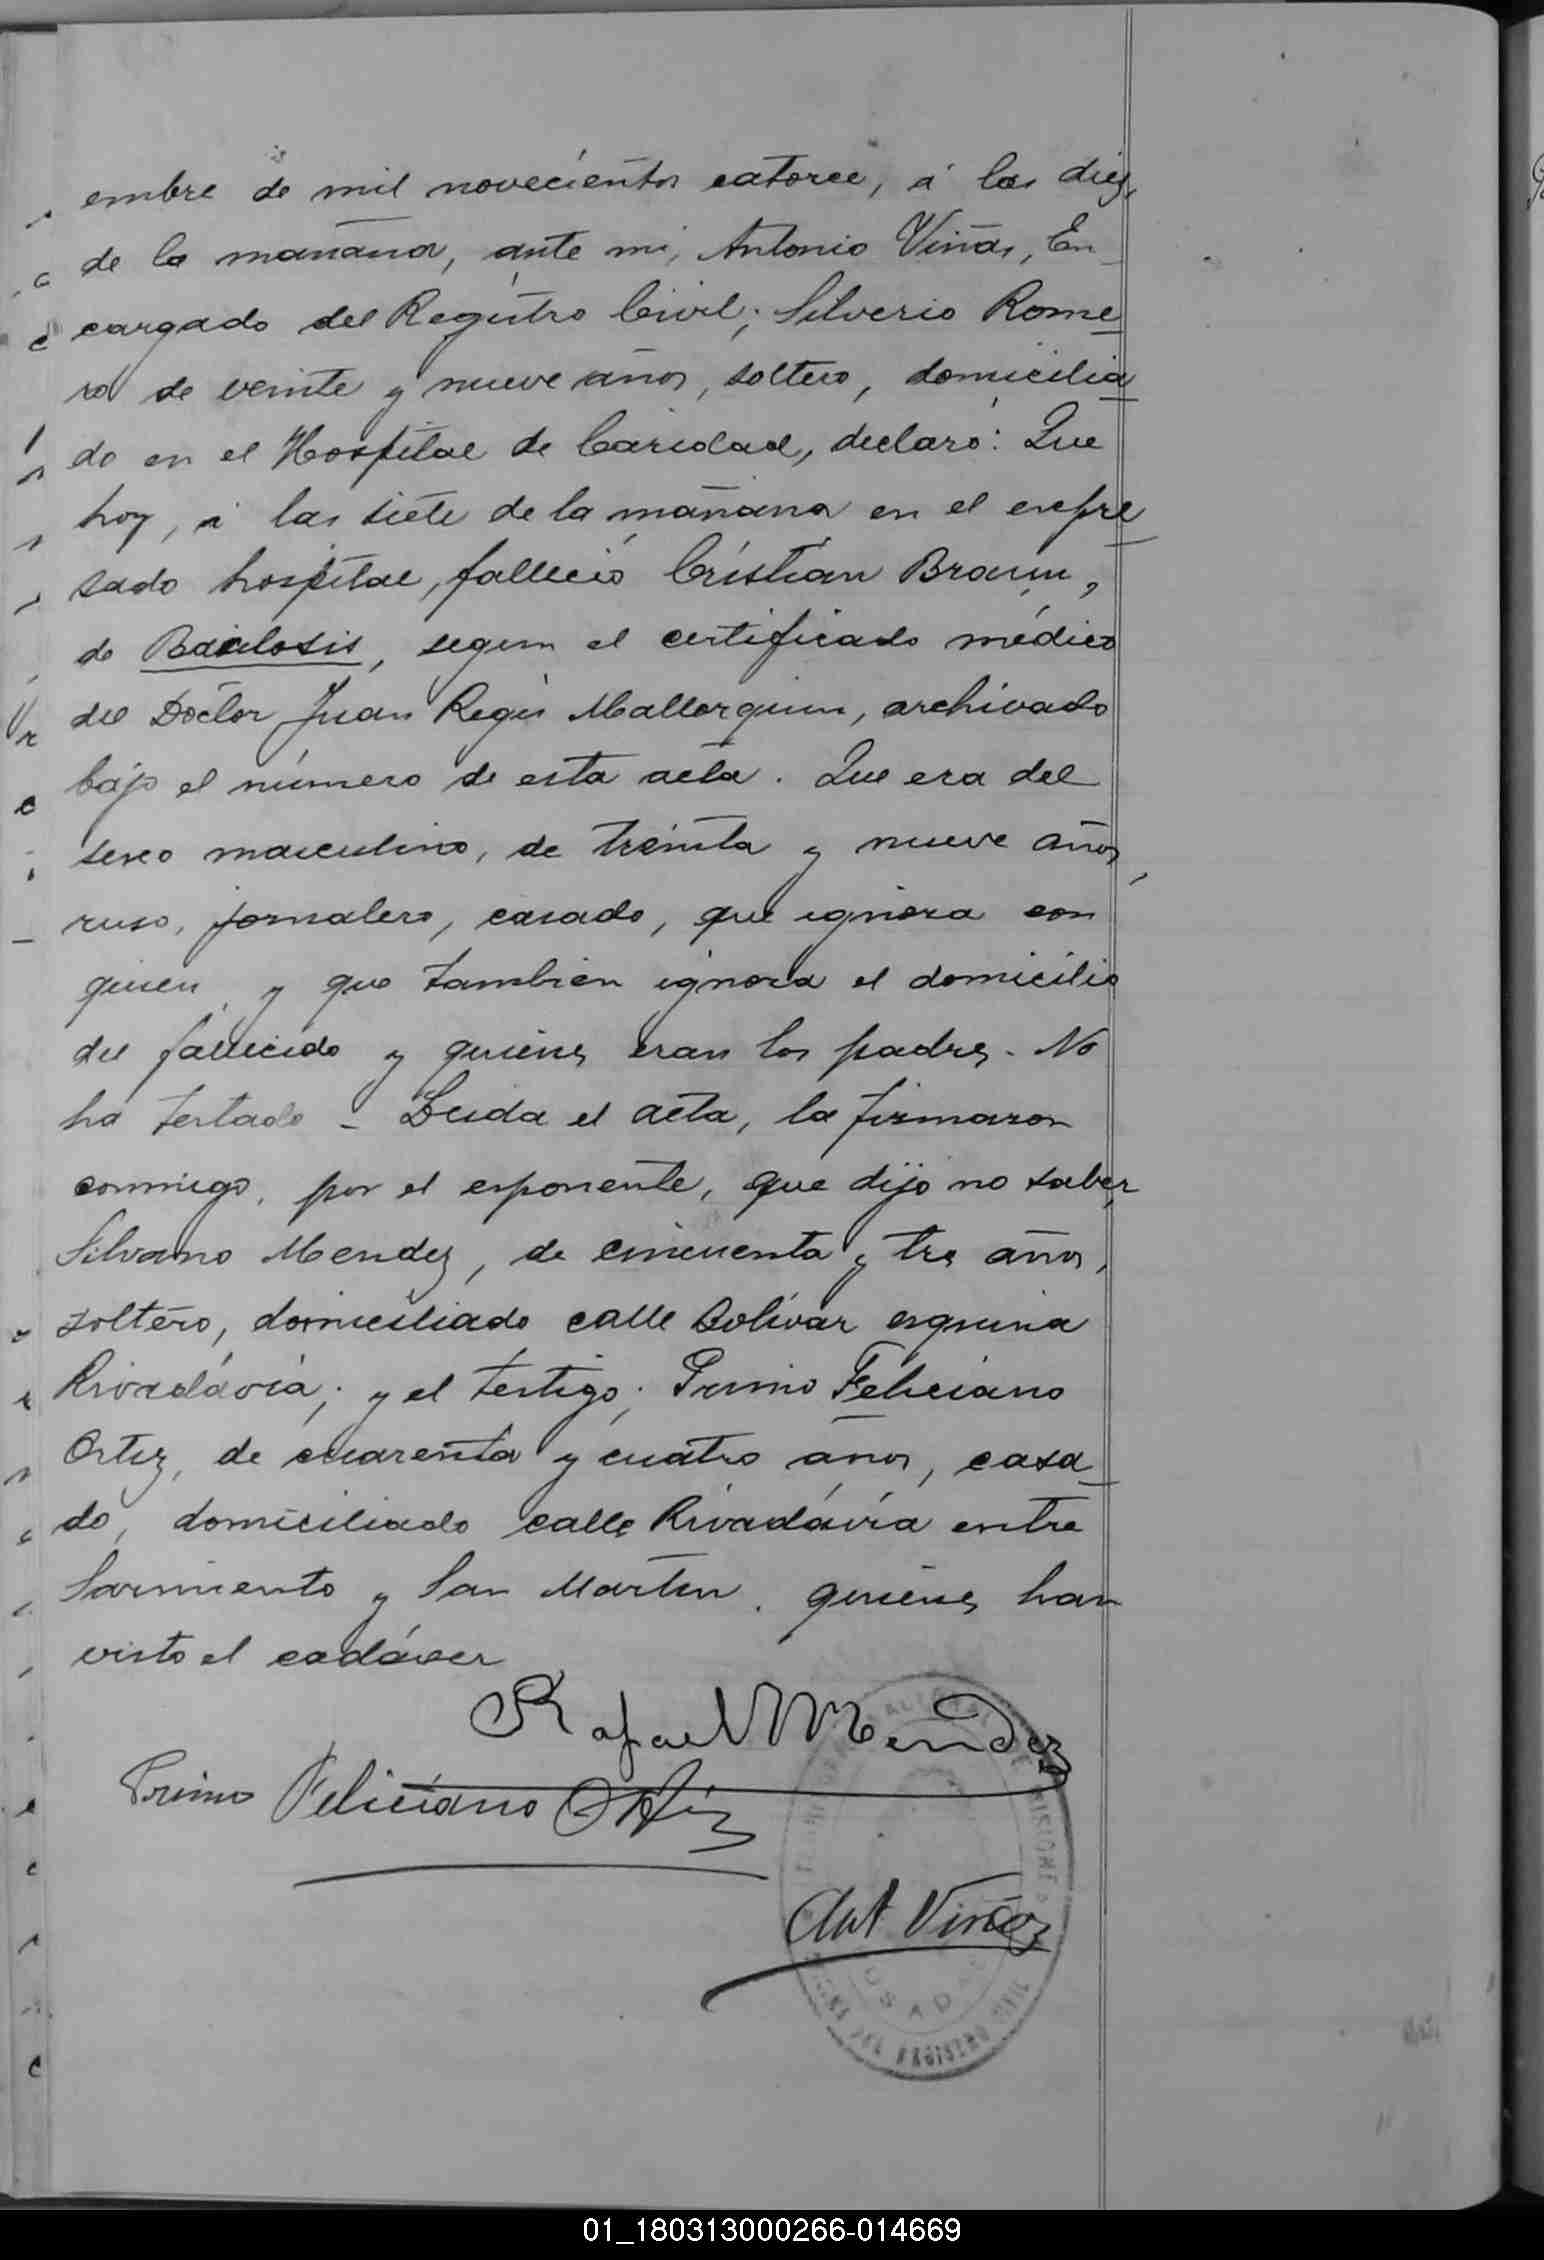 embre de mil novecientos catorce, á las diez
de la mañana, ante mi, Antonio Viñas, En
cargado del Registro Civil; Silverio Rome
ro de veinte y nueve años, soltero, domicilia
do en el Hospital de Caridad, declaró: Que
hoy, á las siete de la mañana en el expre
sado hospital, falleció Cristián Braun,
de Bacilosis, segun el certificado médico
del Doctor Juan Regis Mallorquin, archivado
bajo el número de esta acta. Que era del
sexo masculino, de treinta y nueve años,
ruso, jornalero, casado, que ignora con
quien y que tambien ignora el domicilio
del fallecido y quienes eran los padres. No
ha testado - Leida el acta, la firmaron
conmigo, por el esponente, que dijo no saber,
Silvano Mendez, de cincuenta y tres años,
soltero, domiciliado calle Bolívar esquina
Rivadávia; y el testigo; Primo Feliciano
Ortiz, de cuarenta y cuatro años, casa
do, domiciliado calle Rivadávia entre
Sarmiento y San Martin. quienes han
visto el cadáver
Rafael Mendez
Primo Feliciano Ortiz
Ant Viñas
POSADAS
DEL REGISTRO CIVIL
01_180313000266-014669